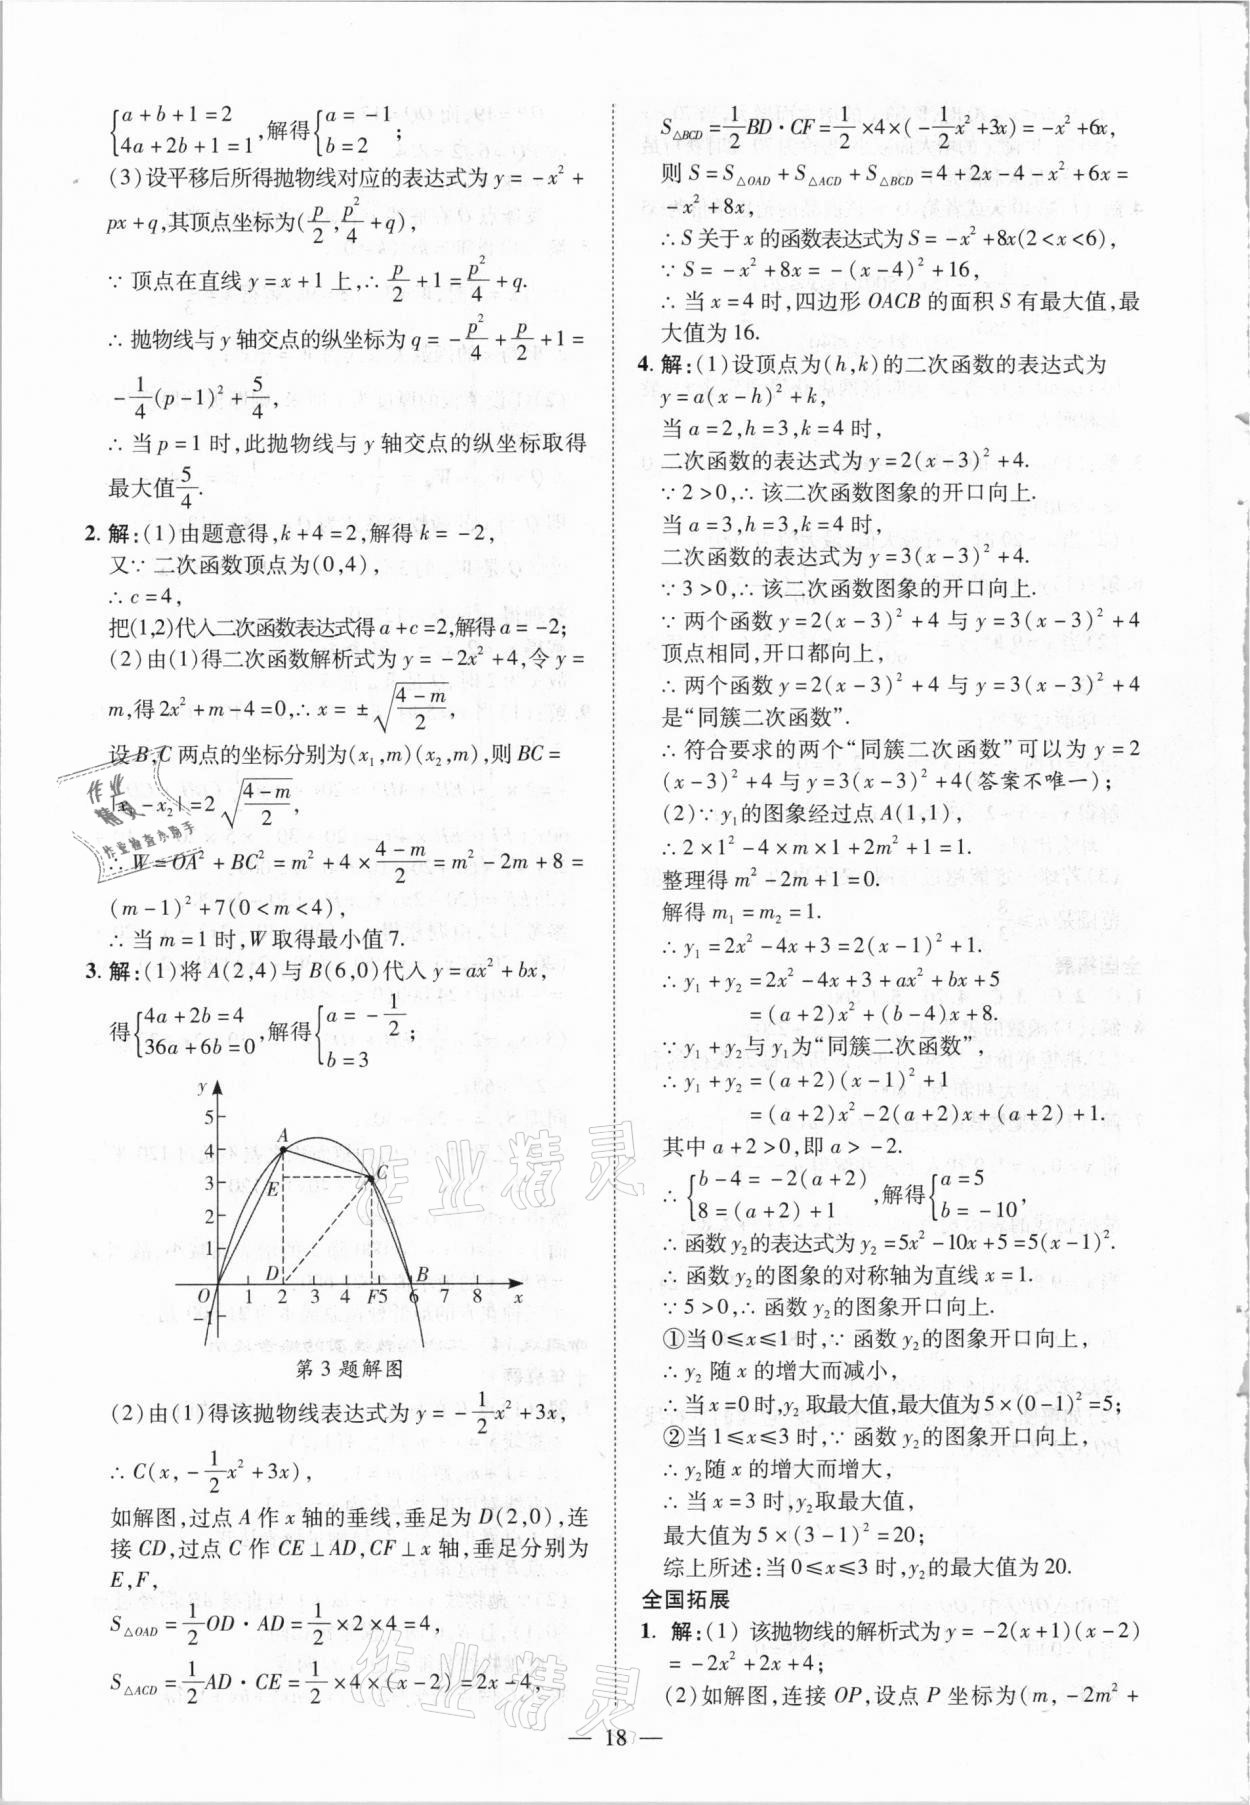 {a+b+1=2
4a+2b+1=1 ,解得 {a=-1
b=2 ;
(3)设平移后所得抛物线对应的表达式为 y=-x²+
px+q,其顶点坐标为(p/2, p²/4+q),
∵ 顶点在直线 y=x+1 上,∴ p/2+1=p²/4+q.
∴ 抛物线与 y 轴交点的纵坐标为 q=-p²/4+p/2+1=
-1/4(p-1)²+5/4,
∴ 当 p=1 时,此抛物线与 y 轴交点的纵坐标取得
最大值5/4.
2. 解:(1)由题意得,k+4=2,解得 k=-2,
又∵ 二次函数顶点为(0,4),
∴ c=4,
把(1,2)代入二次函数表达式得 a+c=2,解得 a=-2;
(2)由(1)得二次函数解析式为 y=-2x²+4,令 y=
m,得 2x²+m-4=0,∴ x=±√((4-m)/2),
设 B,C 两点的坐标分别为(x₁,m)(x₂,m),则 BC=
|x₁-x₂|=2√((4-m)/2),
∴ W=OA²+BC²=m²+4×(4-m)/2=m²-2m+8=
(m-1)²+7(0<m<4),
∴ 当 m=1 时,W 取得最小值 7.
3. 解:(1)将 A(2,4)与 B(6,0)代入 y=ax²+bx,
得 {4a+2b=4
36a+6b=0 ,解得 {a=-1/2
b=3 ;
y
5
4
3
2
1
-1
A
E
C
D
B
O 1 2 3 4 F 5 6 7 8 x
第 3 题解图
(2)由(1)得该抛物线表达式为 y=-1/2x²+3x,
∴ C(x,-1/2x²+3x),
如解图,过点 A 作 x 轴的垂线,垂足为 D(2,0),连
接 CD,过点 C 作 CE⊥AD,CF⊥x 轴,垂足分别为
E,F,
S△OAD=1/2OD·AD=1/2×2×4=4,
S△ACD=1/2AD·CE=1/2×4×(x-2)=2x-4,
S△BCD=1/2BD·CF=1/2×4×(-1/2x²+3x)=-x²+6x,
则 S=S△OAD+S△ACD+S△BCD=4+2x-4-x²+6x=
-x²+8x,
∴ S 关于 x 的函数表达式为 S=-x²+8x(2<x<6),
∵ S=-x²+8x=-(x-4)²+16,
∴ 当 x=4 时,四边形 OACB 的面积 S 有最大值,最
大值为 16.
4. 解:(1)设顶点为(h,k)的二次函数的表达式为
y=a(x-h)²+k,
当 a=2,h=3,k=4 时,
二次函数的表达式为 y=2(x-3)²+4.
∵ 2>0,∴ 该二次函数图象的开口向上.
当 a=3,h=3,k=4 时,
二次函数的表达式为 y=3(x-3)²+4.
∵ 3>0,∴ 该二次函数图象的开口向上.
∵ 两个函数 y=2(x-3)²+4 与 y=3(x-3)²+4
顶点相同,开口都向上,
∴ 两个函数 y=2(x-3)²+4 与 y=3(x-3)²+4
是“同簇二次函数”.
∴ 符合要求的两个“同簇二次函数”可以为 y=2
(x-3)²+4 与 y=3(x-3)²+4(答案不唯一);
(2)∵ y₁的图象经过点 A(1,1),
∴ 2×1²-4×m×1+2m²+1=1.
整理得 m²-2m+1=0.
解得 m₁=m₂=1.
∴ y₁=2x²-4x+3=2(x-1)²+1.
∴ y₁+y₂=2x²-4x+3+ax²+bx+5
=(a+2)x²+(b-4)x+8.
∵ y₁+y₂与 y₁为“同簇二次函数”,
∴ y₁+y₂=(a+2)(x-1)²+1
=(a+2)x²-2(a+2)x+(a+2)+1.
其中 a+2>0,即 a>-2.
∴ {b-4=-2(a+2)
8=(a+2)+1 ,解得 {a=5
b=-10 ,
∴ 函数 y₂的表达式为 y₂=5x²-10x+5=5(x-1)².
∴ 函数 y₂的图象的对称轴为直线 x=1.
∵ 5>0,∴ 函数 y₂的图象开口向上.
①当 0≤x≤1 时,∵ 函数 y₂的图象开口向上,
∴ y₂ 随 x 的增大而减小,
∴ 当 x=0 时,y₂ 取最大值,最大值为 5×(0-1)²=5;
②当 1≤x≤3 时,∵ 函数 y₂的图象开口向上,
∴ y₂随 x 的增大而增大,
∴ 当 x=3 时,y₂取最大值,
最大值为 5×(3-1)²=20;
综上所述:当 0≤x≤3 时,y₂的最大值为 20.
全国拓展
1. 解:(1) 该抛物线的解析式为 y=-2(x+1)(x-2)
=-2x²+2x+4;
(2)如解图,连接 OP,设点 P 坐标为(m,-2m²+
— 18 —
作业精灵
作业精灵
作业
精灵
作业检查小助手